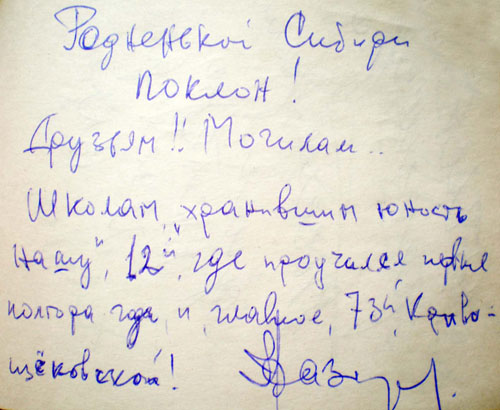 Родненькой Сибири
поклон!
Друзьям!! Могилам..
Школам, „хранившим юность
нашу", 12й, где проучился первые
полтора года и, главное, 73й, Криво-
щёковской!